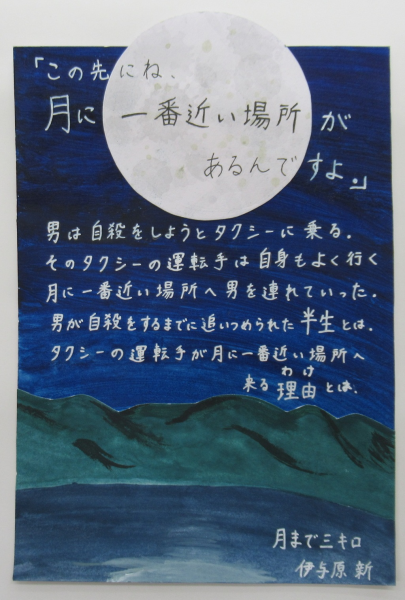 「この先にね、
月に一番近い場所が
あるんですよ。」
男は自殺をしようとタクシーに乗る。
そのタクシーの運転手は自身もよく行く
月に一番近い場所へ男を連れていった。
男が自殺をするまでに追いつめられた半生とは。
タクシーの運転手が月に一番近い場所へ
わけ
来る理由とは。
月まで三キロ
伊与原 新